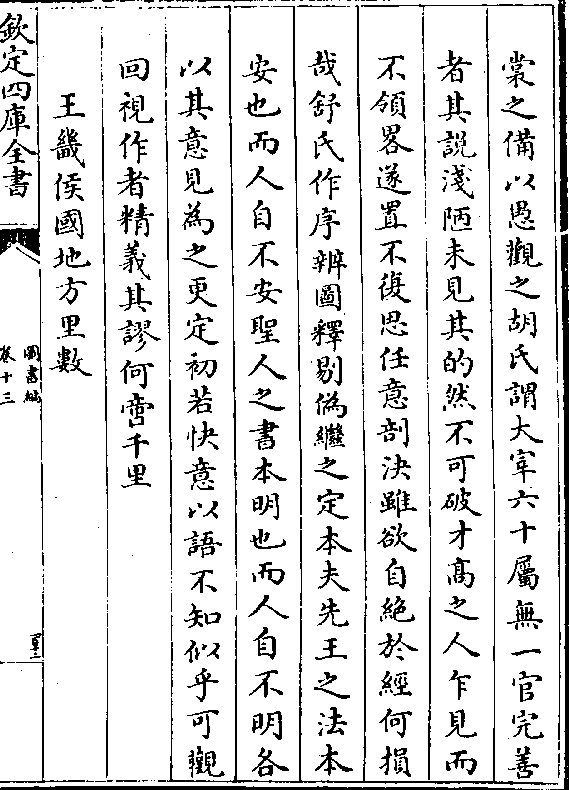 裳之備以愚觀之胡氏謂大宰六十屬無一官完善
者其説淺陋未見其的然不可破才髙之人乍見而
不領畧遂置不復思任意剖決雖欲自絶於經何損
哉舒氏作序辨圖釋剔偽繼之定本夫先王之法本
安也而人自不安聖人之書本明也而人自不明各
以其意見為之更定初若快意以語不知似乎可觀
回視作者精義其謬何啻千里
王畿侯國地方里數
欽定四庫全書
圖書編
卷十三